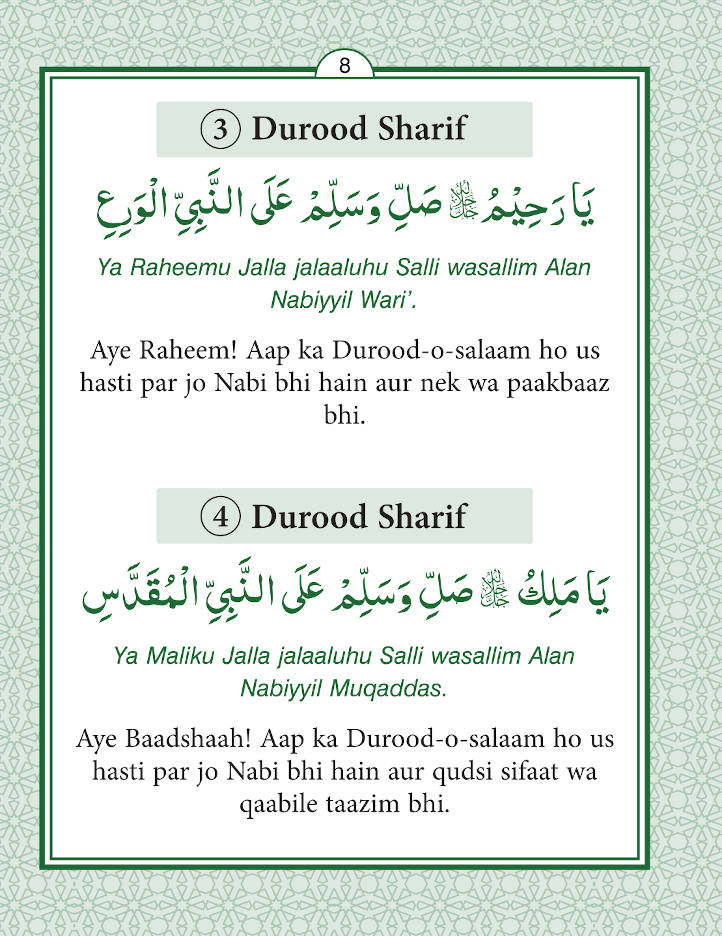 8
③ Durood Sharif
يَا رَحِيْمُ ﷻ صَلِّ وَسَلِّمْ عَلَى النَّبِيِّ الْوَرِعِ
Ya Raheemu Jalla jalaaluhu Salli wasallim Alan
Nabiyyil Wari’.
Aye Raheem! Aap ka Durood-o-salaam ho us
hasti par jo Nabi bhi hain aur nek wa paakbaaz
bhi.
④ Durood Sharif
يَا مَلِكُ ﷻ صَلِّ وَسَلِّمْ عَلَى النَّبِيِّ الْمُقَدَّسِ
Ya Maliku Jalla jalaaluhu Salli wasallim Alan
Nabiyyil Muqaddas.
Aye Baadshaah! Aap ka Durood-o-salaam ho us
hasti par jo Nabi bhi hain aur qudsi sifaat wa
qaabile taazim bhi.